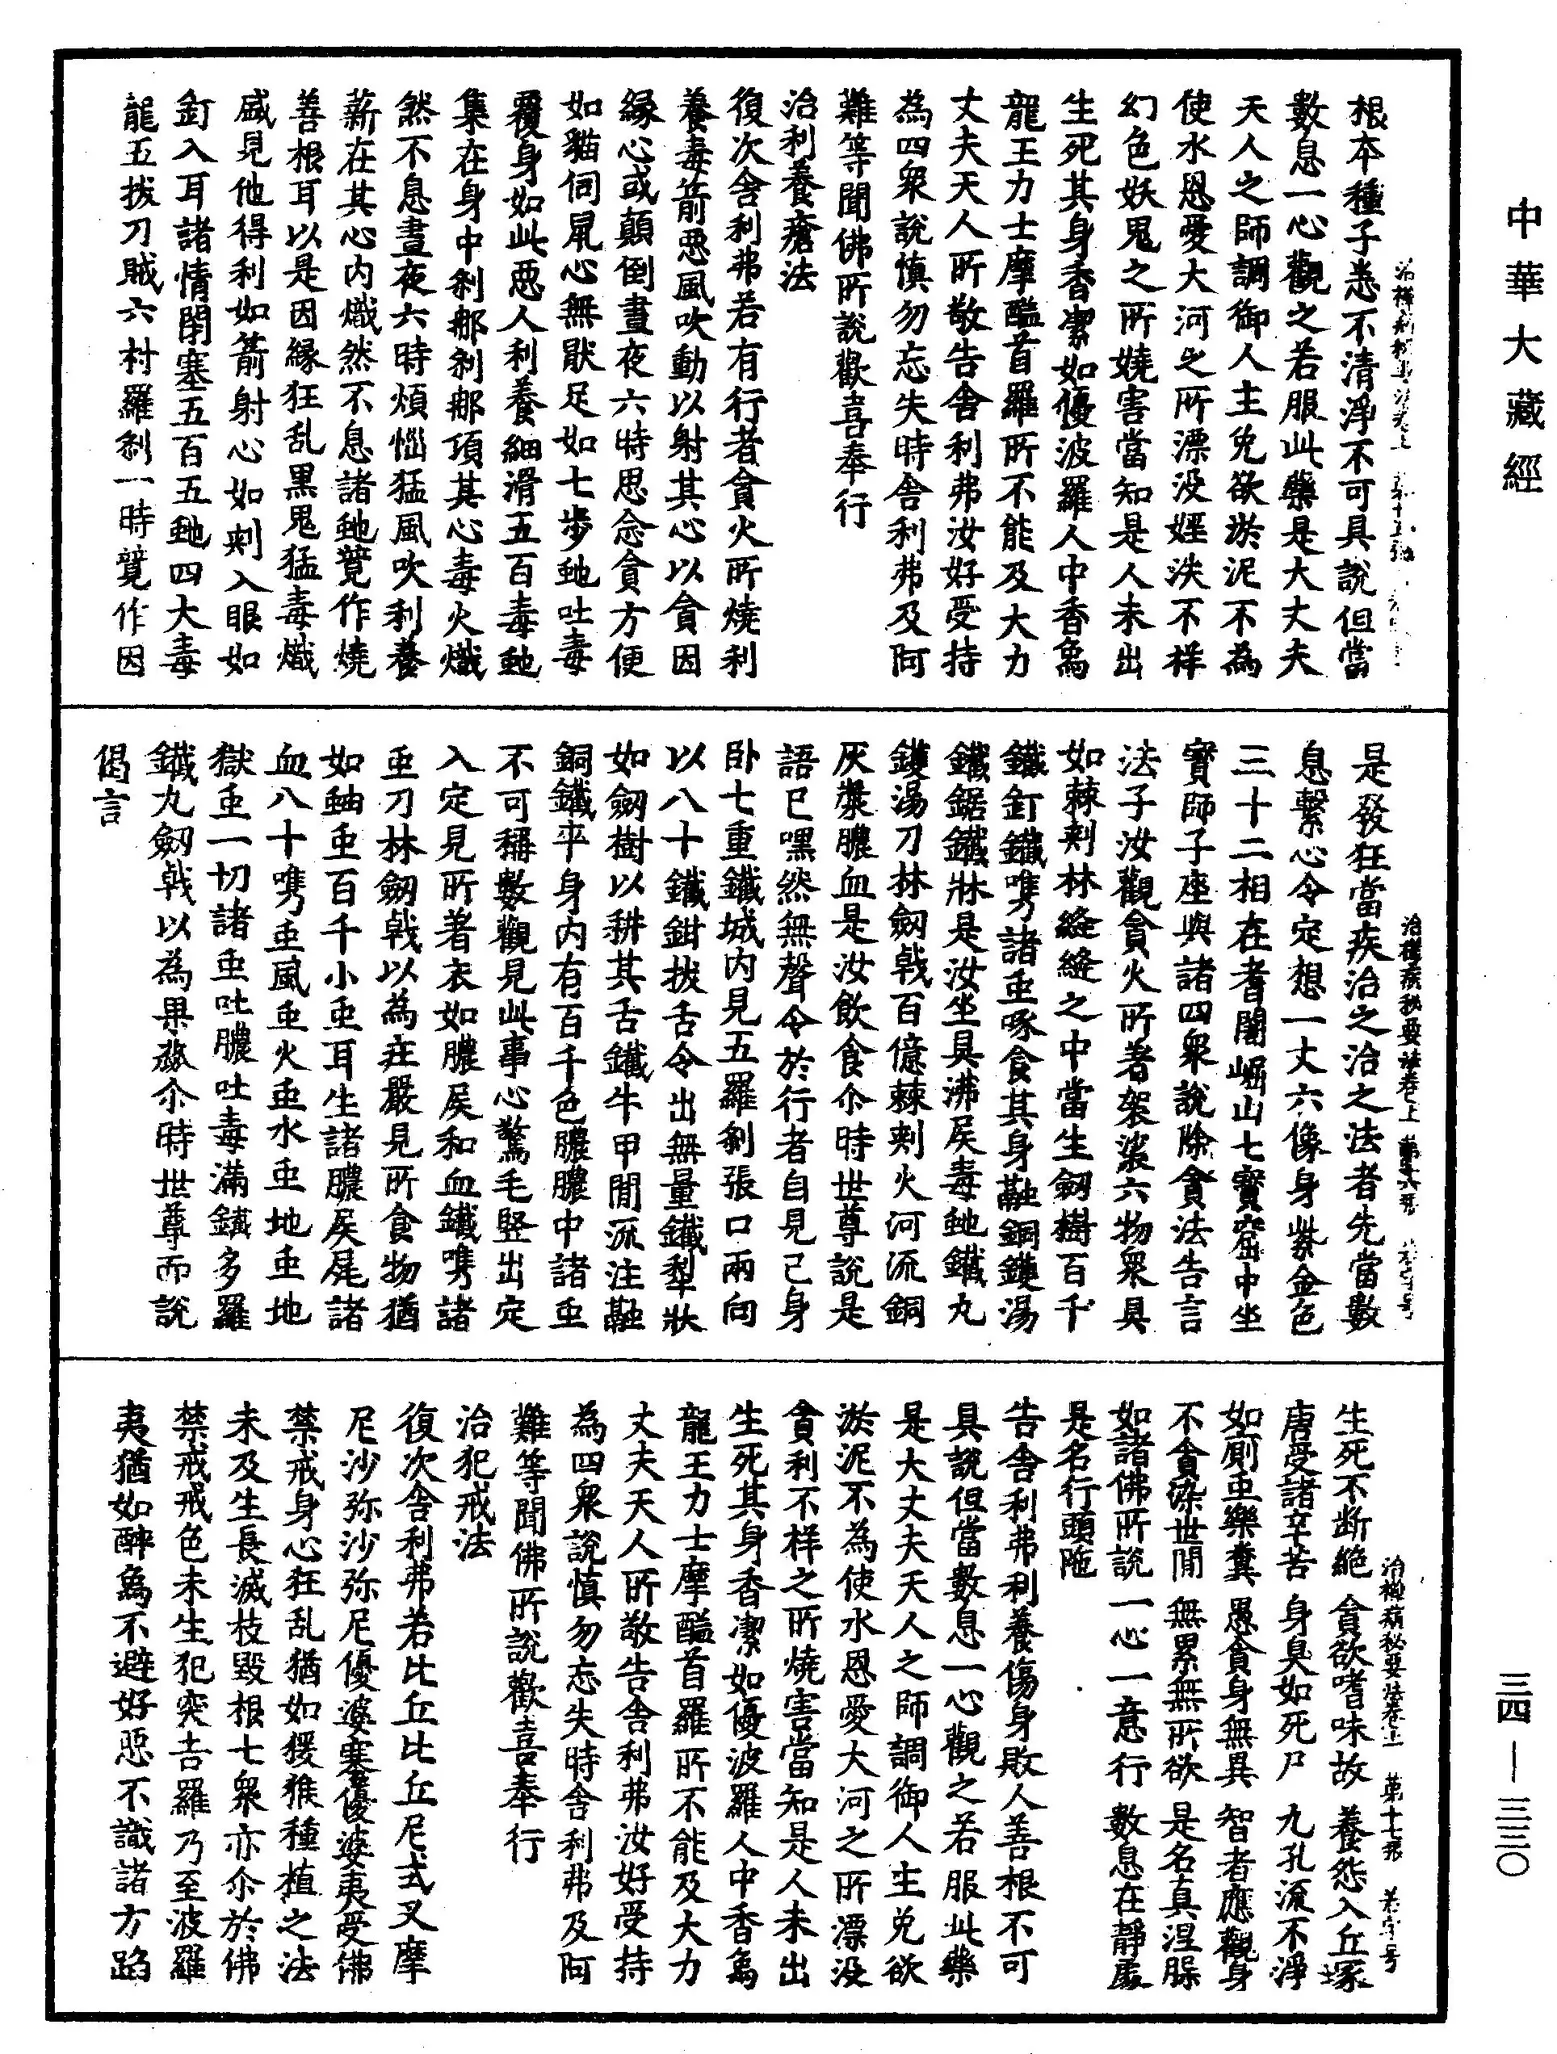 中華大藏經
根本種子悉不清淨不可具說但當
數息一心觀之若服此藥是大丈夫
天人之師調御人主免欲淤泥不為
使水恩愛大河之所漂没婬泆不祥
幻色妖鬼之所嬈害當知是人未出
生死其身香潔如優波羅人中香烏
龍王力士摩醯首羅所不能及大力
丈夫天人所敬告舍利弗汝好受持
為四衆說慎勿忘失時舍利弗及阿
難等聞佛所說歡喜奉行
治利養瘡法
復次舍利弗若有行者貪火所燒利
養毒箭惡風吹動以射其心以貪因
緣心或顛倒晝夜六時思念貪方便
如貓伺鼠心無猒足如七步虵吐毒
覆身如此惡人利養細滑五百毒虵
集在身中刹那刹那項其心毒火熾
然不息晝夜六時煩惱猛風吹利養
薪在其心内熾然不息諸虵競作燒
善根耳以是因緣狂乱黑鬼猛毒熾
盛見他得利如箭射心如刺入眼如
釘入耳諸情閇塞五百五虵四大毒
龍五拔刀賊六村羅刹一時競作因
治禪病秘要法卷上
是發狂當疾治之治之法者先當數
息繫心令定想一丈六像身紫金色
三十二相在耆闍崛山七寶窟中坐
寶師子座與諸四衆說除貪法告言
法子汝觀貪火所著袈裟六物衆具
如棘刺林縫縫之中當生劒樹百千
鐵釘鐵㭰諸䖝啄食其身融銅鑊湯
鐵鋸鐵牀是汝坐具沸屎毒虵鐵丸
鑊湯刀林劒戟百億棘刺火河流銅
灰漿膿血是汝飲食尒時世尊說是
語已嘿然無聲令於行者自見己身
卧七重鐵城内見五羅刹張口兩向
以八十鐵鉗拔舌令出無量鐵犁狀
如劒樹以耕其舌鐵牛甲閒流注融
銅鐵卒身内有百千色膿膿中諸䖝
不可稱數觀見此事心驚毛竪出定
入定見所著衣如膿屎和血鐵㭰諸
䖝刀林劒戟以為莊嚴見所食物猶
如蚰䖝百千小䖝耳生諸膿屎尾諸
血八十㭰䖝風䖝火䖝水䖝地䖝地
獄䖝一切諸䖝吐膿吐毒滿鐵多羅
鐵丸劒戟以為果蓏尒時世尊而說
偈言
治禪病秘要法卷上 第十七張
生死不断絶 貪欲嗜味故 養怨入丘塚
唐受諸辛苦 身臭如死尸 九孔流不淨
如厠䖝樂糞 愚貪身無異 智者應觀身
不貪染世閒 無累無所欲 是名真涅槃
如諸佛所說 一心一意行 數息在靜處
是名行頭陁
告舍利弗利養傷身敗人善根不可
具說但當數息一心觀之若服此藥
是大丈夫天人之師調御人主免欲
淤泥不為使水恩愛大河之所漂没
貪利不祥之所燒害當知是人未出
生死其身香潔如優波羅人中香烏
龍王力士摩醯首羅所不能及大力
丈夫天人所敬告舍利弗汝好受持
為四衆說慎勿忘失時舍利弗及阿
難等聞佛所說歡喜奉行
治犯戒法
復次舍利弗若比丘比丘尼式叉摩
尼沙弥沙弥尼優婆塞優婆夷受佛
禁戒身心狂乱猶如猨猴種植之法
未及生長滅枝毀根七衆亦尒於佛
禁戒戒色未生犯突吉羅乃至波羅
夷猶如醉烏不避好惡不識諸方蹈
三四—三三〇